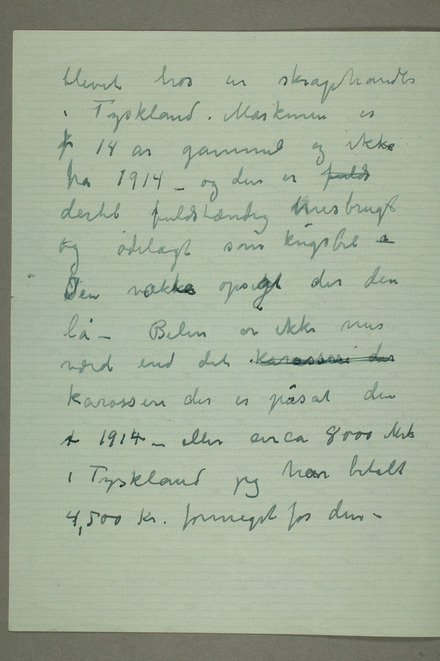 blevet hos en skraphandler
i Tyskland. Maskinen er
14 år gammel og ikke
fra 1914 – og den er fulds
dertil fuldstændig misbrugt
og ødelagt som krigsbil
Den vakte opsigt der den
lå – Bilen er ikke mer
værd end det karosseri der
karosseri der er påsat den
1914 – eller circa 8000 Mrk
i Tyskland jeg har betalt
4,500 Kr. formeget for den –